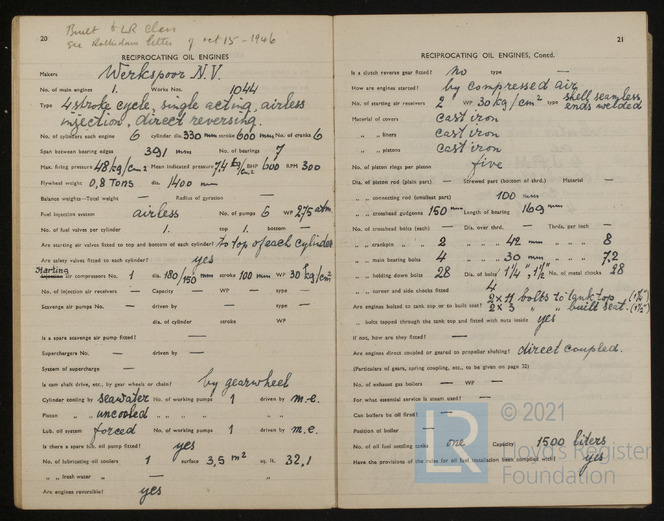 20
Built to LR Class
see Rotterdam letter of oct 15 - 1946
RECIPROCATING OIL ENGINES
Makers Werkspoor N.V.
No. of main engines 1. Works Nos. 1044
Type 4 stroke cycle, single acting, airless
injection, direct reversing.
No. of cylinders each engine 6 cylinder dia. 330 mm stroke 600 mm No. of cranks 6
Span between bearing edges 391 mm No. of bearings 7
Max. firing pressure 48 kg/cm2 Mean indicated pressure 7,4 kg/cm2 BHP 600 RPM 300
Flywheel weight 0,8 Tons dia. 1400 mm
Balance weights—Total weight — Radius of gyration —
Fuel injection system airless No. of pumps 6 WP 275 atm
No. of fuel valves per cylinder 1. top 1. bottom —
Are starting air valves fitted to top and bottom of each cylinder? to top of each cylinder
Are safety valves fitted to each cylinder? yes
Starting air compressors No. 1 dia. 180/150 mm stroke 100 mm WP 30 kg/cm2
No. of injection air receivers — Capacity — WP — type —
Scavenge air pumps No. — driven by — type —
dia. of cylinder stroke WP
Is a spare scavenge air pump fitted? —
Superchargers No. — driven by —
System of supercharge —
Is cam shaft drive, etc., by gear wheels or chain? by gearwheel
Cylinder cooling by seawater No. of working pumps 1 driven by m.e.
Piston „ „ uncooled „ „ „ „
Lub. oil system forced No. of working pumps 1 driven by m.e.
Is there a spare lub. oil pump fitted? yes
No. of lubricating oil coolers 1 surface 3,5 m2 sq. ft. 32,1
„ „ fresh water „ — „
Are engines reversible? yes
21
RECIPROCATING OIL ENGINES, Contd.
Is a clutch reverse gear fitted? no type —
How are engines started? by compressed air
No. of starting air receivers 2 WP 30 kg/cm2 type shell seamless
ends welded
Material of covers cast iron
„ „ liners cast iron
„ „ pistons cast iron
No. of piston rings per piston five
Dia. of piston rod (plain part) — Screwed part (bottom of thrd.) — Material —
„ „ connecting rod (smallest part) 100 mm
„ „ crosshead gudgeons 150 mm Length of bearing 169 mm
No. of crosshead bolts (each) — Dia. over thrd. — Thrds. per inch —
„ „ crankpin „ „ 2 „ „ 42 mm „ „ 8
„ „ main bearing bolts 4 „ „ 30 mm „ „ 7,2
„ „ holding down bolts 28 Dia. of bolts 1 1/4", 1 1/2" No. of metal chocks 28
„ „ corner and side chocks fitted 4
Are engines bolted to tank top or to built seat? 2x11 bolts to tank top
2x3 „ „ built seat.
„ bolts tapped through the tank top and fitted with nuts inside yes
If not, how are they fitted? —
Are engines direct coupled or geared to propeller shafting? direct coupled.
(Particulars of gears, spring coupling, etc., to be given on page 22)
No. of exhaust gas boilers — WP —
For what essential service is steam used? —
Can boilers be oil fired? —
Position of boiler —
No. of oil fuel settling tanks one Capacity 1500 liters
Have the provisions of the rules for oil fuel installation been complied with? yes
LR
© 2021
Lloyd's Register
Foundation